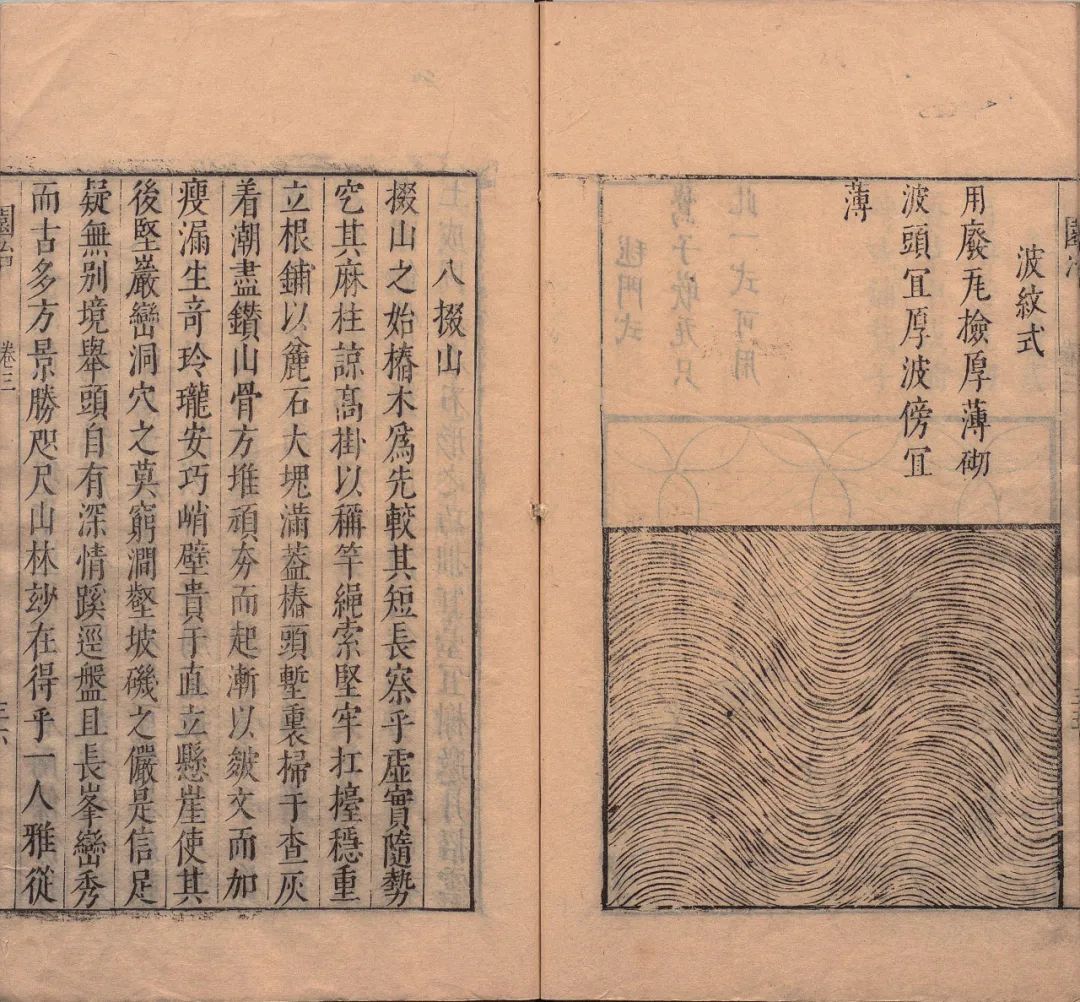 園冶
波紋式
用廢瓦檢厚薄砌
波頭冝厚波傍冝
薄
八掇山
掇山之始樁木爲先較其短長察乎虛實隨勢
空其麻柱諒高掛以稱竿繩索堅牢扛擡穩重
立根鋪以麄石大塊滿葢樁頭塹裏掃于查灰
着潮盡鑽山骨方堆頑夯而起漸以皴文而加
瘦漏生竒玲瓏安巧峭壁貴于直立懸崖使其
後堅巖巒洞穴之莫窮澗壑坡磯之儼是信足
疑無别境舉頭自有深情蹊逕盤且長峯巒秀
而古多方景勝咫尺山林玅在得乎一人雅從
園冶
卷三
三六